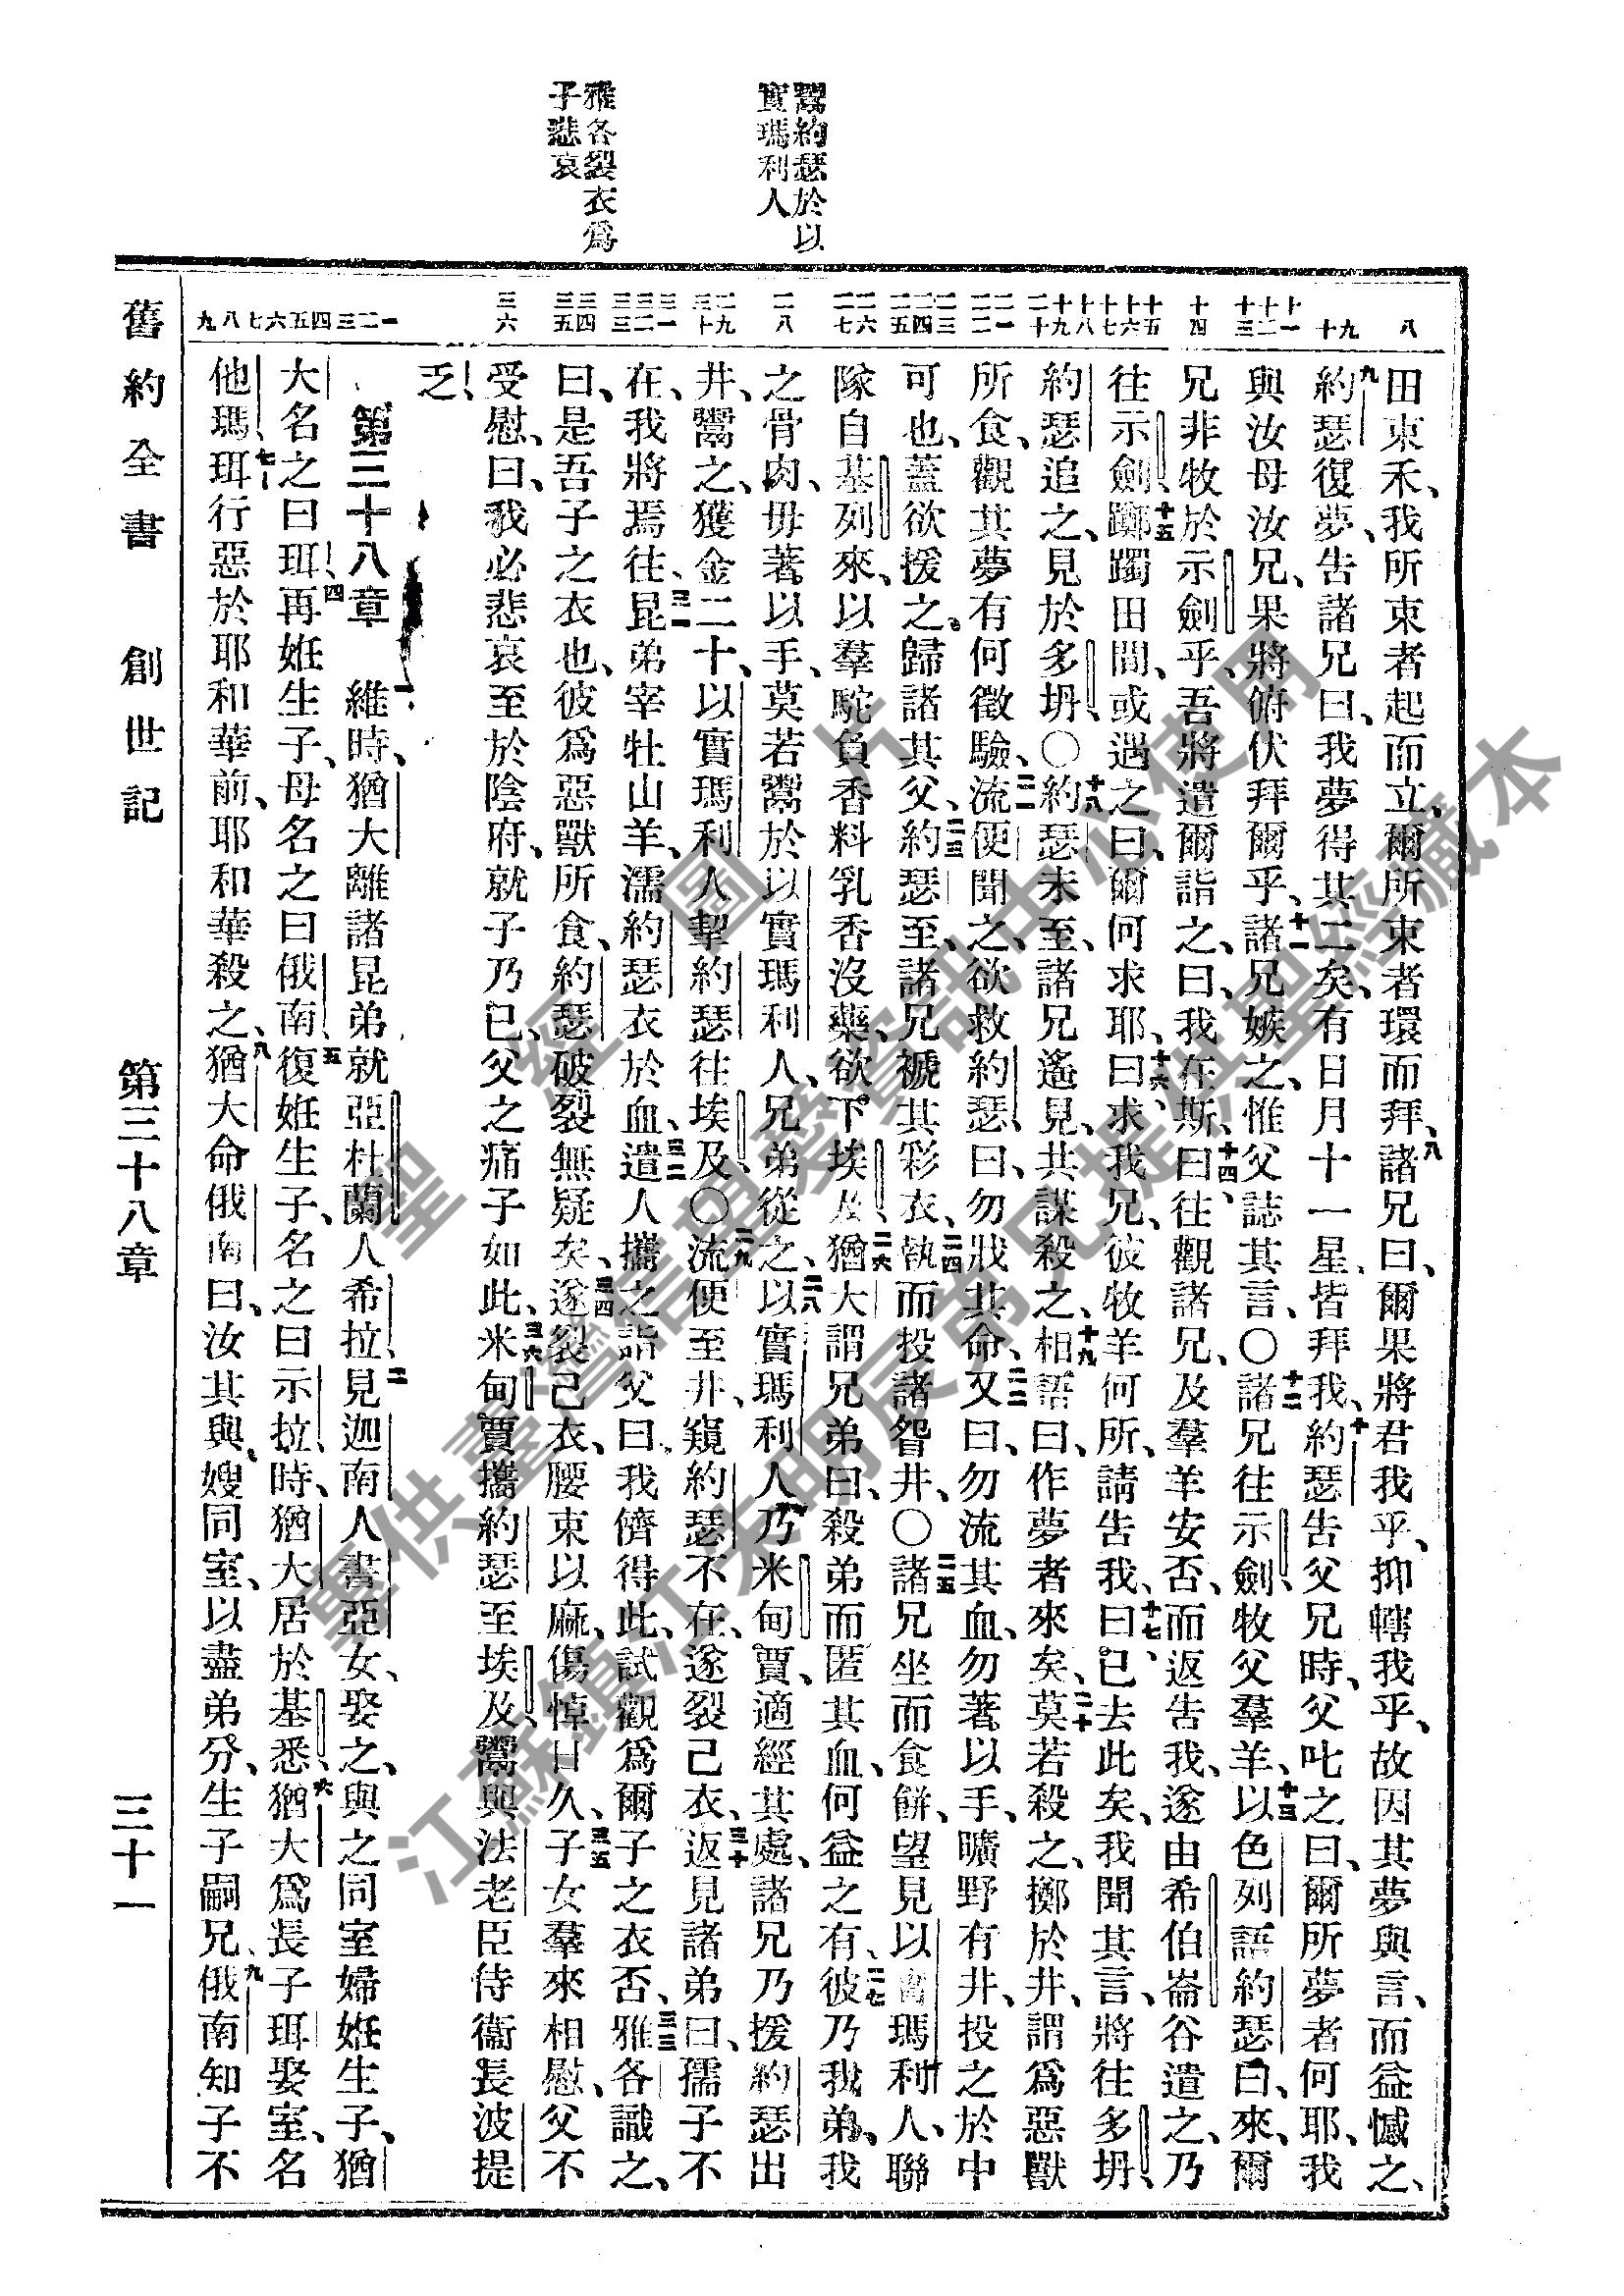 鬻約瑟於以
實瑪利人
雅各裂衣爲
子悲哀
八
九十
十一十二十三
十四
十五十六十七
十八十九二十
二一二二
二三二四二五
二六二七
二八
二九三十
三一三二三三
三四三五
三六
一二三四五六七八九
田束禾、我所束者起而立、爾所束者環而拜、八諸兄曰、爾果將君我乎、抑轄我乎、故因其夢與言、而益憾之、
九約瑟復夢、告諸兄曰、我夢得其二矣、有日月十一星、皆拜我、十約瑟告父兄時、父叱之曰、爾所夢者何耶、我
與汝母汝兄、果將俯伏拜爾乎、十一諸兄嫉之、惟父誌其言、〇十二諸兄往示劍、牧父羣羊、十三以色列語約瑟曰、來、爾
兄非牧於示劍乎、吾將遣爾詣之、曰、我在斯、十四曰、往觀諸兄、及羣羊安否、而返告我、遂由希伯崙谷遣之、乃
往示劍、十五躑躅田間、或遇之曰、爾何求耶、十六曰、求我兄、彼牧羊何所、請告我、十七曰、已去此矣、我聞其言、將往多坍、
約瑟追之、見於多坍、〇十八約瑟未至、諸兄遙見、共謀殺之、十九相語曰、作夢者來矣、二十莫若殺之、擲於井、謂爲惡獸
所食、觀其夢有何徵驗、二一流便聞之、欲救約瑟、曰、勿戕其命、二二又曰、勿流其血、勿著以手、曠野有井、投之於中
可也、蓋欲援之、歸諸其父、二三約瑟至、諸兄褫其彩衣、二四執而投諸眢井、〇二五諸兄坐而食餅、望見以實瑪利人、聯
隊自基列來、以羣駝負香料乳香沒藥、欲下埃及、二六猶大謂兄弟曰、殺弟而匿其血、何益之有、二七彼乃我弟、我
之骨肉、毋著以手、莫若鬻於以實瑪利人、兄弟從之、二八以實瑪利人、乃米甸賈、適經其處、諸兄乃援約瑟出
井、鬻之、獲金二十、以實瑪利人挈約瑟往埃及、〇二九流便至井、窺約瑟不在、遂裂己衣、三十返見諸弟曰、孺子不
在、我將焉往、三一昆弟宰牡山羊、濡約瑟衣於血、三二遣人攜之詣父曰、我儕得此、試觀爲爾子之衣否、三三雅各識之、
曰、是吾子之衣也、彼爲惡獸所食、約瑟破裂無疑矣、三四遂裂己衣、腰束以麻、傷悼日久、三五子女羣來相慰、父不
受慰、曰、我必悲哀至於陰府、就子乃已、父之痛子如此、三六米甸賈攜約瑟至埃及、鬻與法老臣侍衞長波提
乏、
第三十八章 一維時、猶大離諸昆弟、就亞杜蘭人希拉、二見迦南人書亞女、娶之、與之同室、三婦姙生子、猶
大名之曰珥、四再姙生子、母名之曰俄南、五復姙生子、名之曰示拉、時、猶大居於基悉、六猶大爲長子珥娶室、名
他瑪、七珥行惡於耶和華前、耶和華殺之、八猶大命俄南曰、汝其與嫂同室、以盡弟分、生子嗣兄、九俄南知子不
舊約全書 創世記 第三十八章 三十一
聖經圖片
蒙供臺灣信望愛資訊中心使用
江蘇鎮江朱明辰弟兄提供聖經藏本